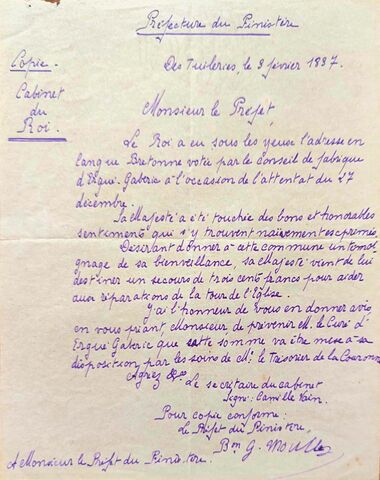 Préfecture du Finistère
Copie.
Cabinet
du
Roi.
Des Tuileries, le 3 février 1837.
Monsieur le Préfet,
Le Roi a eu sous les yeux l'adresse en
langue Bretonne votée par le conseil de fabrique
d'Ergué-Gaberic à l'occasion de l'attentat du 27
décembre.
Sa Majesté a été touchée des bons et honorables
sentiments qui s'y trouvent naïvement exprimés.
Désirant donner à cette commune un témoi
gnage de sa bienveillance, sa Majesté vient de lui
destiner un secours de trois cents francs pour aider
aux réparations de la tour de l'Eglise.
J'ai l'honneur de vous en donner avis
en vous priant Monsieur de prévenir M. le Curé d'
Ergué Gaberic que cette somme va être mise à sa
disposition par les soins de M. le Trésorier de la Couronne
Agréez &a
Le secrétaire du cabinet
Signé: Camille Fain.
Pour copie conforme:
Le Préfet du Finistère,
Bon G. Boullé
A Monsieur le Préfet du Finistère.